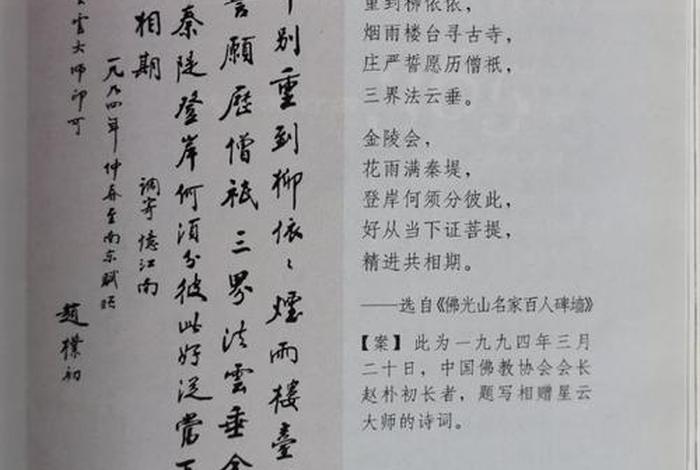 别重到柳依〻煙雨樓臺
願歷僧祇三界法雲垂金
秦隄登岸何須分彼此好從當下
相期
調寄憶江南
一九九四年仲春至南京賦
雲大师印可
趙樸初
重到柳依依，
烟雨楼台寻古寺，
庄严誓愿历僧祇，
三界法云垂。
金陵会，
花雨满秦堤，
登岸何须分彼此，
好从当下证菩提，
精进共相期。
——选自《佛光山名家百人碑墙》
【案】此为一九九四年三月
二十日，中国佛教协会会长
赵朴初长者，题写相赠星云
大师的诗词。